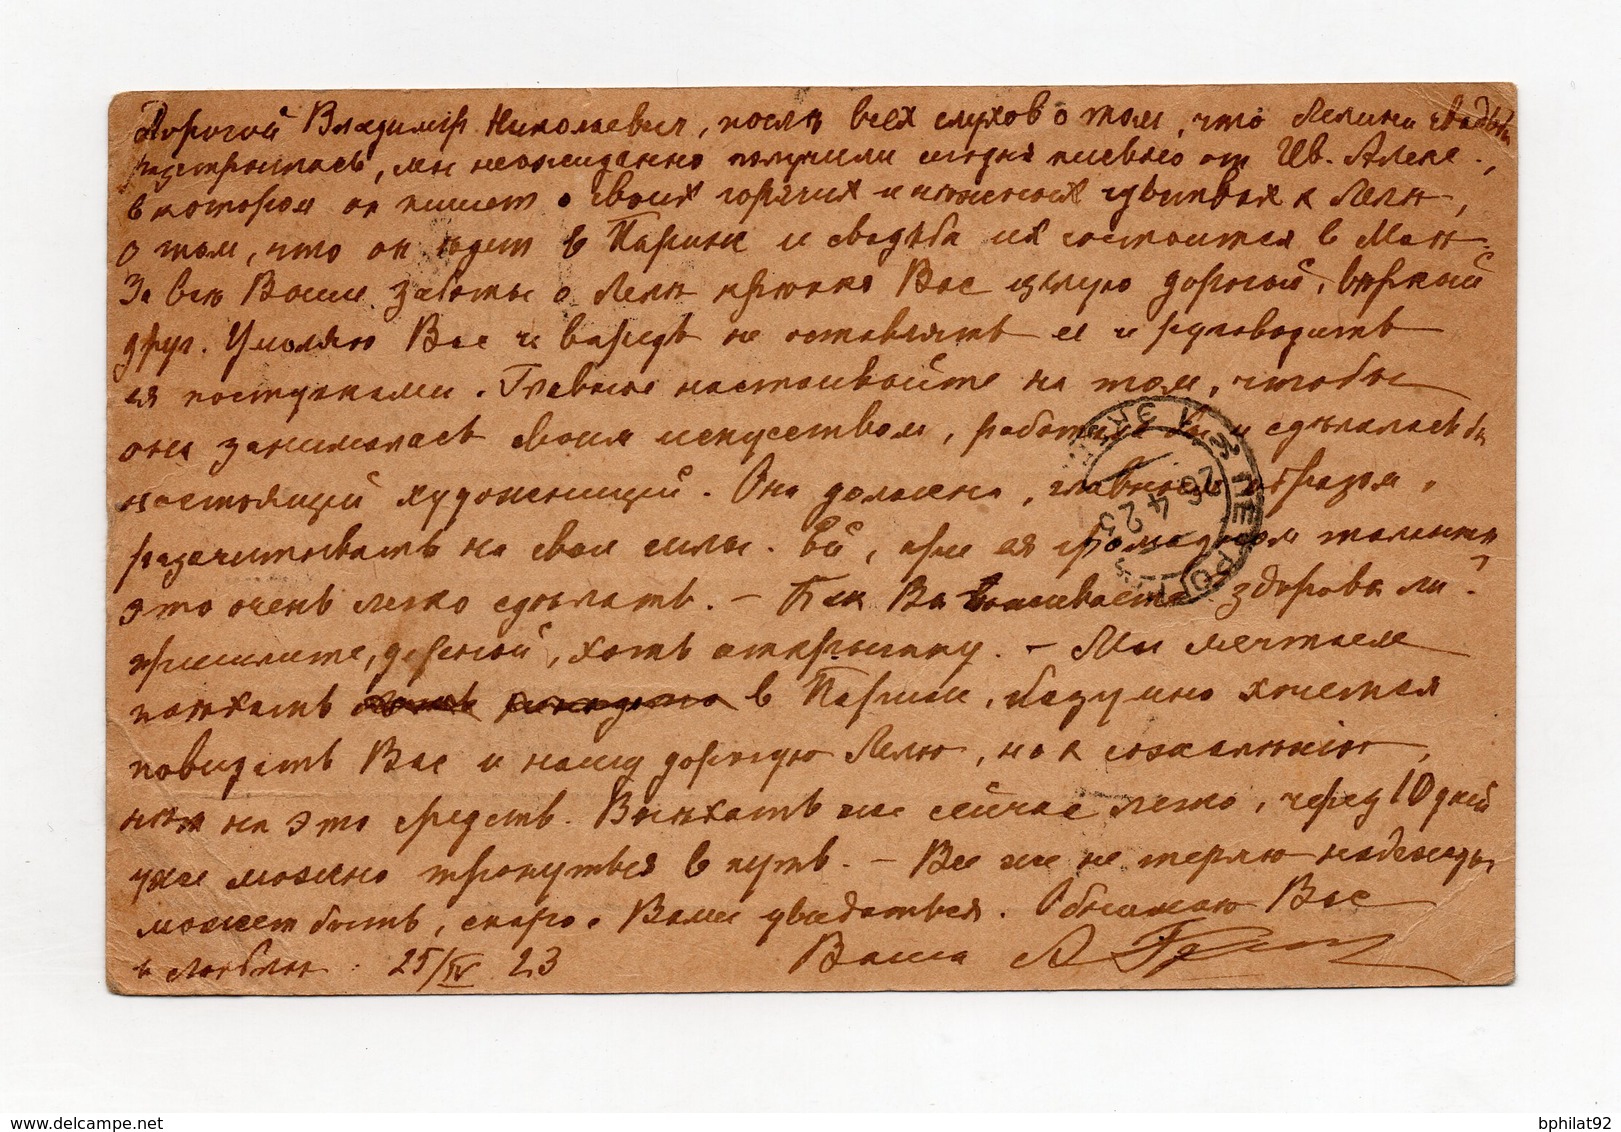 Дорогой Владимір Николаевич, послѣ всех слухов о том, что Лелина свадьба
разстроилась, мы неожиданно получили сегодня письмо от Ив. Алекс.,
в котором он пишет о своих горячих и нѣжных чувствах к Лелѣ,
о том, что он ѣдет в Париж и свадьба их состоится в Маѣ.
За всѣ Ваши заботы о Лелѣ крѣпко Вас цѣлую дорогой, вѣрный
друг. Умоляю Вас и впредь не оставлять ее и руководить
ея поступками. Главное настаивайте на том, чтобы
она занималась своим искусством, работала бы и сдѣлалась бы
настоящей художницей. Она должна, главным образом,
разсчитывать на свои силы. Ей, при ея громадном талантѣ,
это очень легко сдѣлать. – Как Вы поживаете здоровы ли?
пришлите, дорогой, хоть открытку. – Мы мечтаем
поѣхать в Париж, безумно хочется
повидать Вас и нашу дорогую Лелю, но к сожалѣнію,
нѣт на это средств. Выѣхать же сейчас легко, через 10 дней
уже можно тронуться в путь. – Все же не теряю надежды,
может быть, скоро с Вами увидаться. Обнимаю Вас
25/IV 23 Ваша А.
ПЕТРО
26 4 23
bphilat92
www.delcampe.net